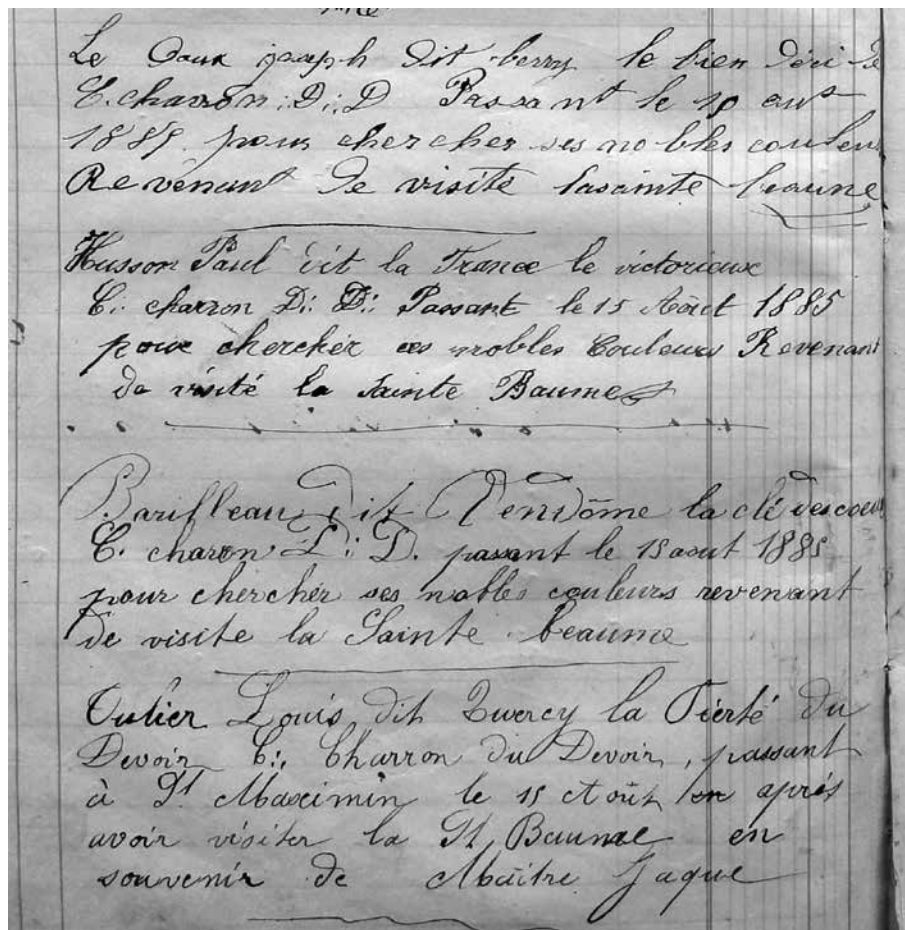 Le Doux joseph dit berry le bien
C. charron D: D Passant le
1885 pour chercher ses nobles couleurs
Revenant de visité lasainte beaune
Husson Paul dit la France le victorieux
C: charron D: D: Passant le 15 Aout 1885
pour chercher ces nobles Couleurs Revenant
de visité la Sainte Baume
Barilleau dit Vendôme la clé des coeurs
C. charon D: D. passant le 15 aout 1885
pour chercher ses nobles couleurs revenant
de visite la Sainte beaume
Louis dit Quercy la Fierté du
Devoir C: Charron du Devoir, passant
à St Maximin le 15 Août après
avoir visiter la St Baume en
souvenir de Maitre Jaque